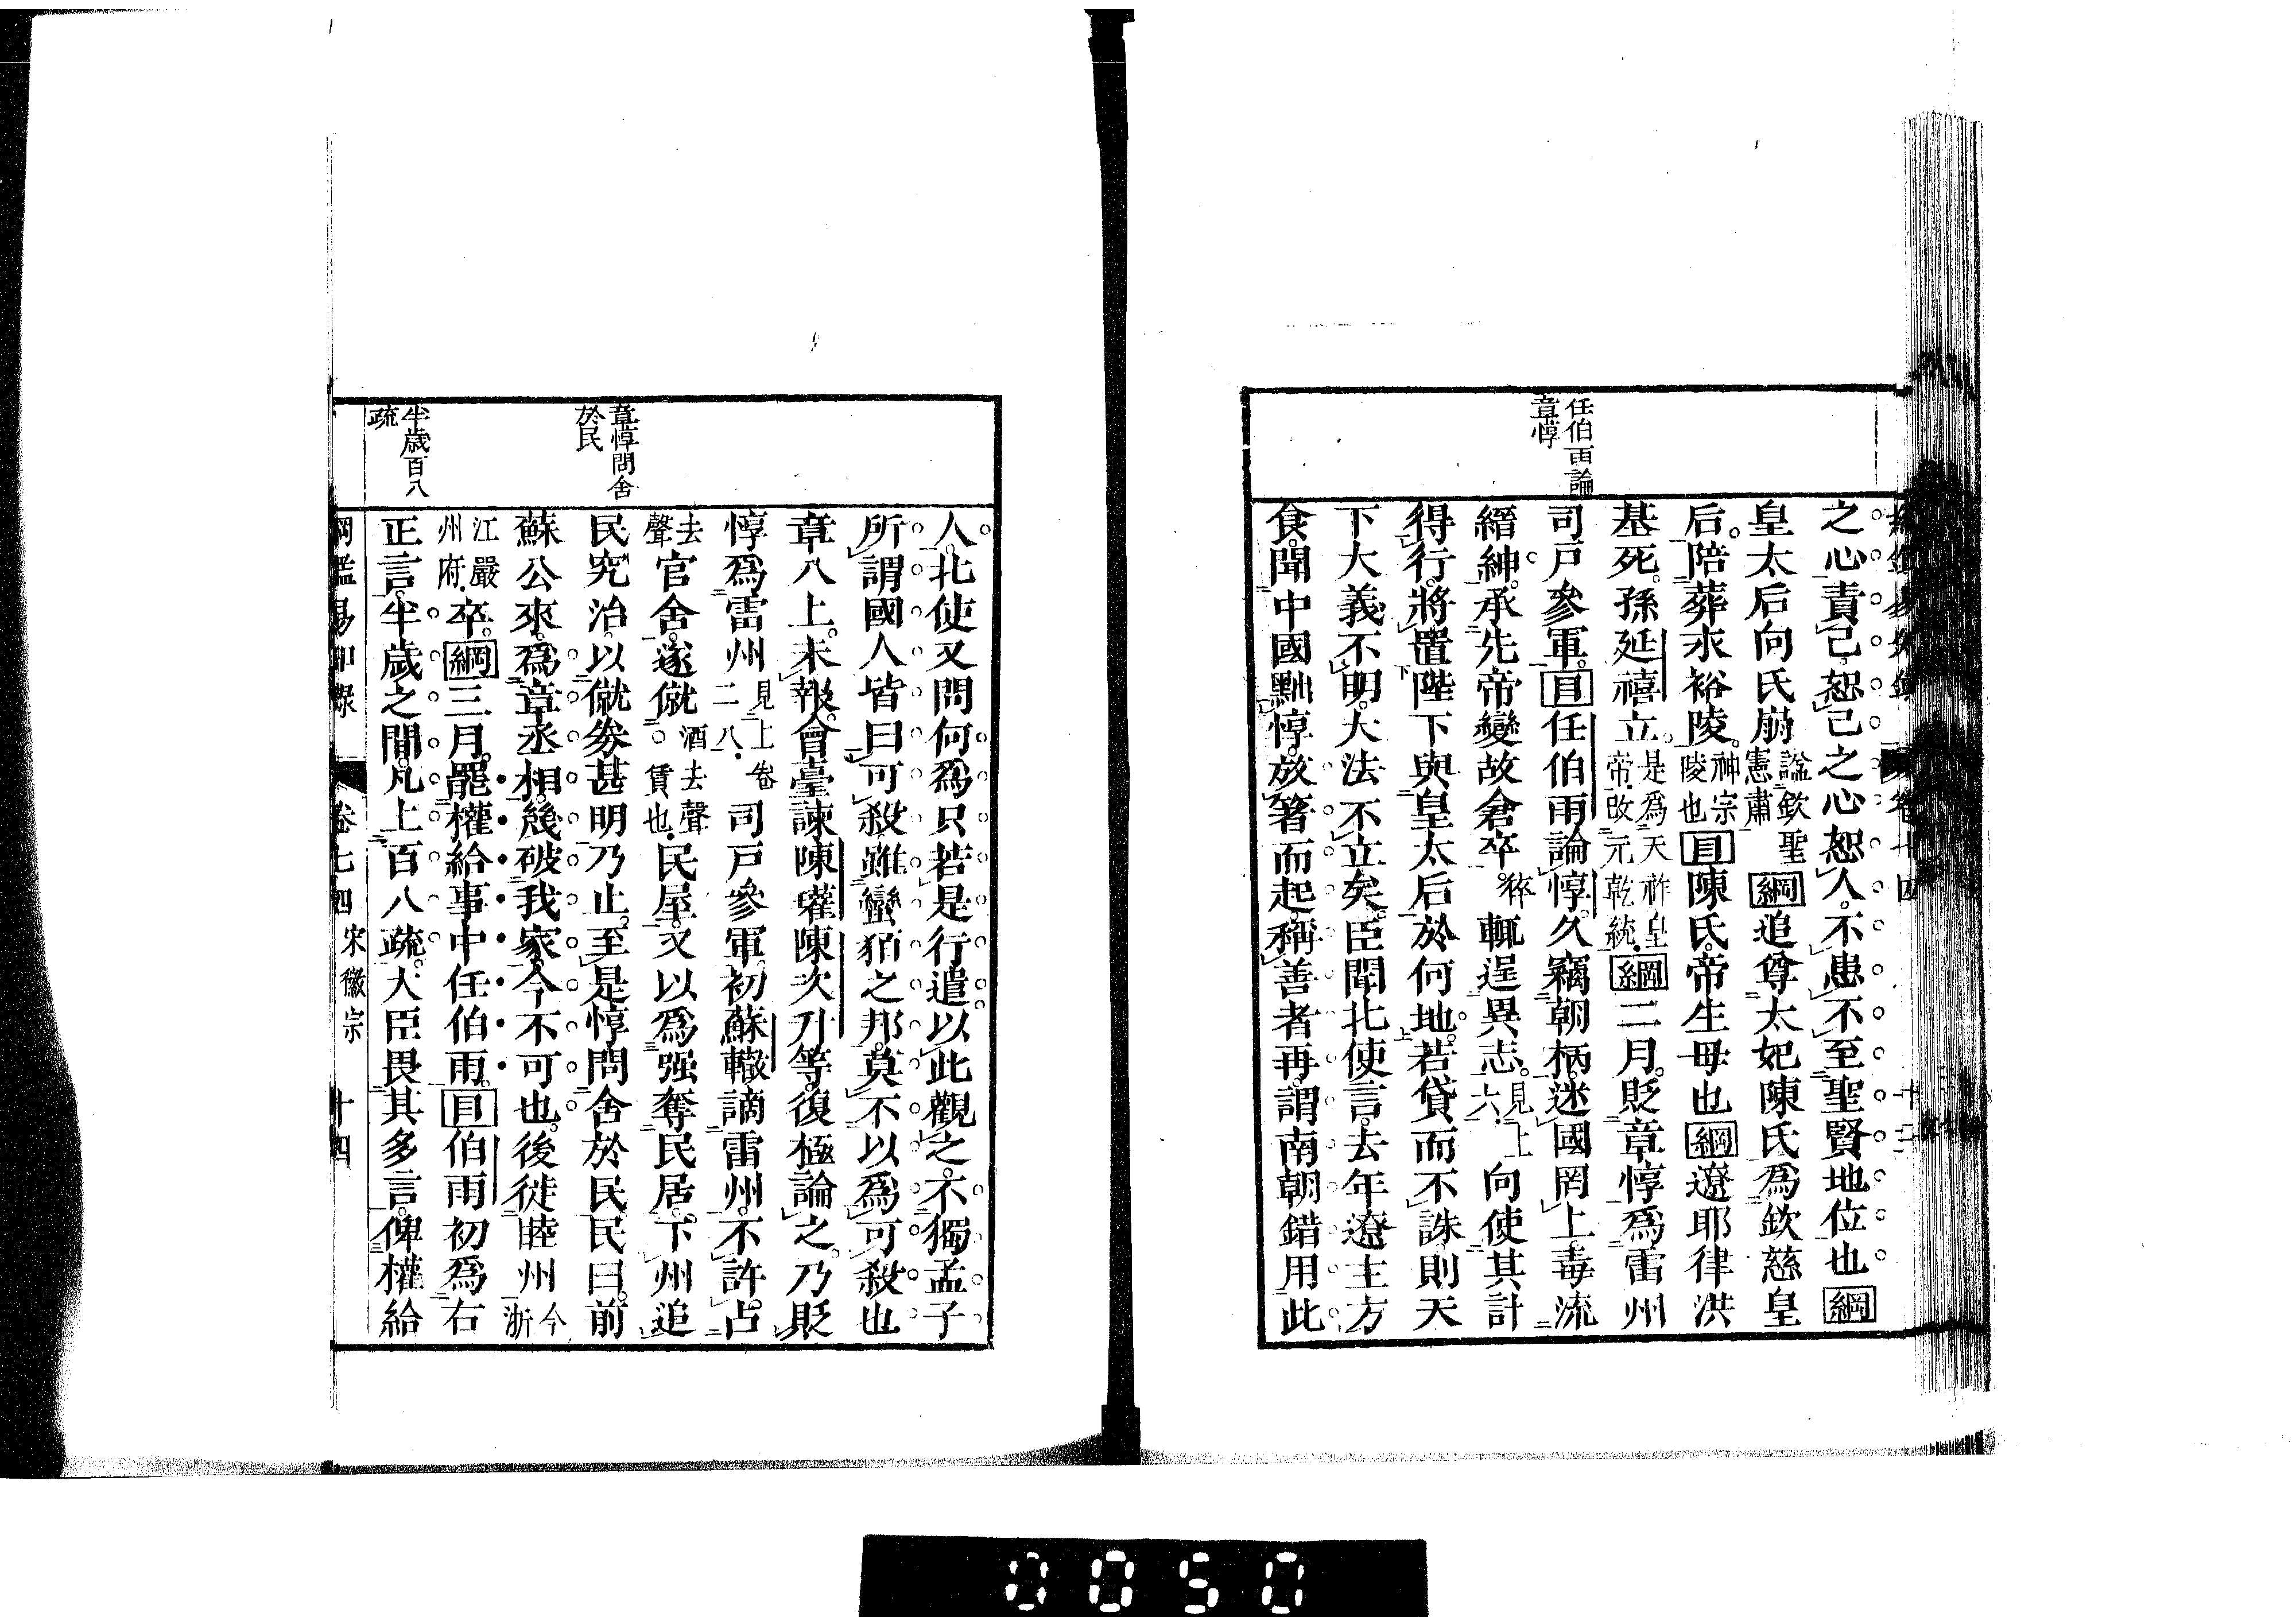 任伯雨論
章惇
之心責己恕己之心恕人不患不至聖賢地位也綱
皇太后向氏崩諡欽聖憲肅綱追尊太妃陳氏爲欽慈皇
后陪葬永裕陵神宗陵也目陳氏帝生母也綱遼耶律洪
基死孫延禧立是爲天祚皇帝改元乾統綱二月貶章惇爲雷州
司戶參軍目任伯雨論惇久竊朝柄迷國罔上毒流
縉紳承先帝變故倉卒猝輒逞異志見上六向使其計
得行將置陛下與皇太后於何地若貸而不誅則天
下大義不明大法不立矣臣聞北使言去年遼主方
食聞中國黜惇放箸而起稱善者再謂南朝錯用此
章惇問舍
於民
半歲百八
疏
人北使又問何爲只若是行遣以此觀之不獨孟子
所謂國人皆曰可殺雖蠻貊之邦莫不以爲可殺也
章八上未報會臺諫陳瓘陳次升等復極論之乃貶
惇爲雷州見上卷二八司戶參軍初蘇轍謫雷州不許占
去聲官舍遂僦酒去聲賃也民屋又以爲强奪民居下州追
民究治以僦券甚明乃止至是惇問舍於民民曰前
蘇公來爲章丞相幾破我家今不可也後徙睦州今浙
江嚴州府卒綱三月罷權給事中任伯雨目伯雨初爲右
正言半歲之間凡上百八疏大臣畏其多言俾權給
綱鑑易知錄 卷七四 宋徽宗 十四